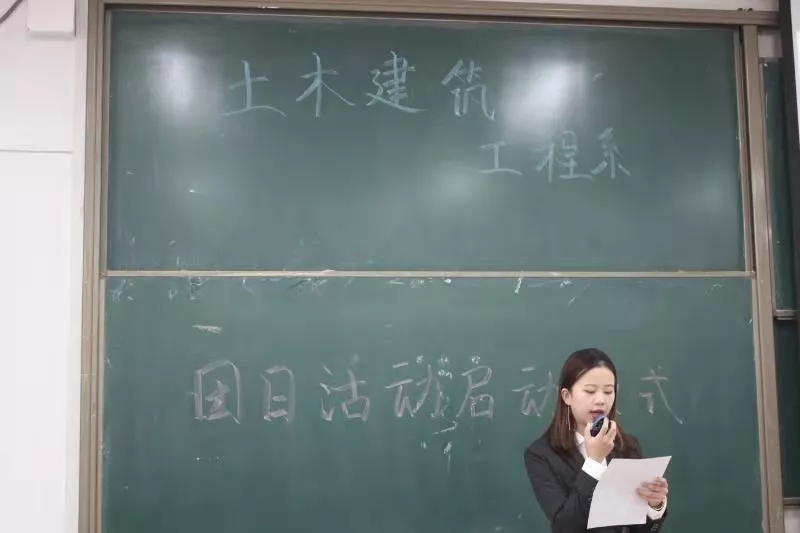 土木建筑
工程系
团日活动启动 式